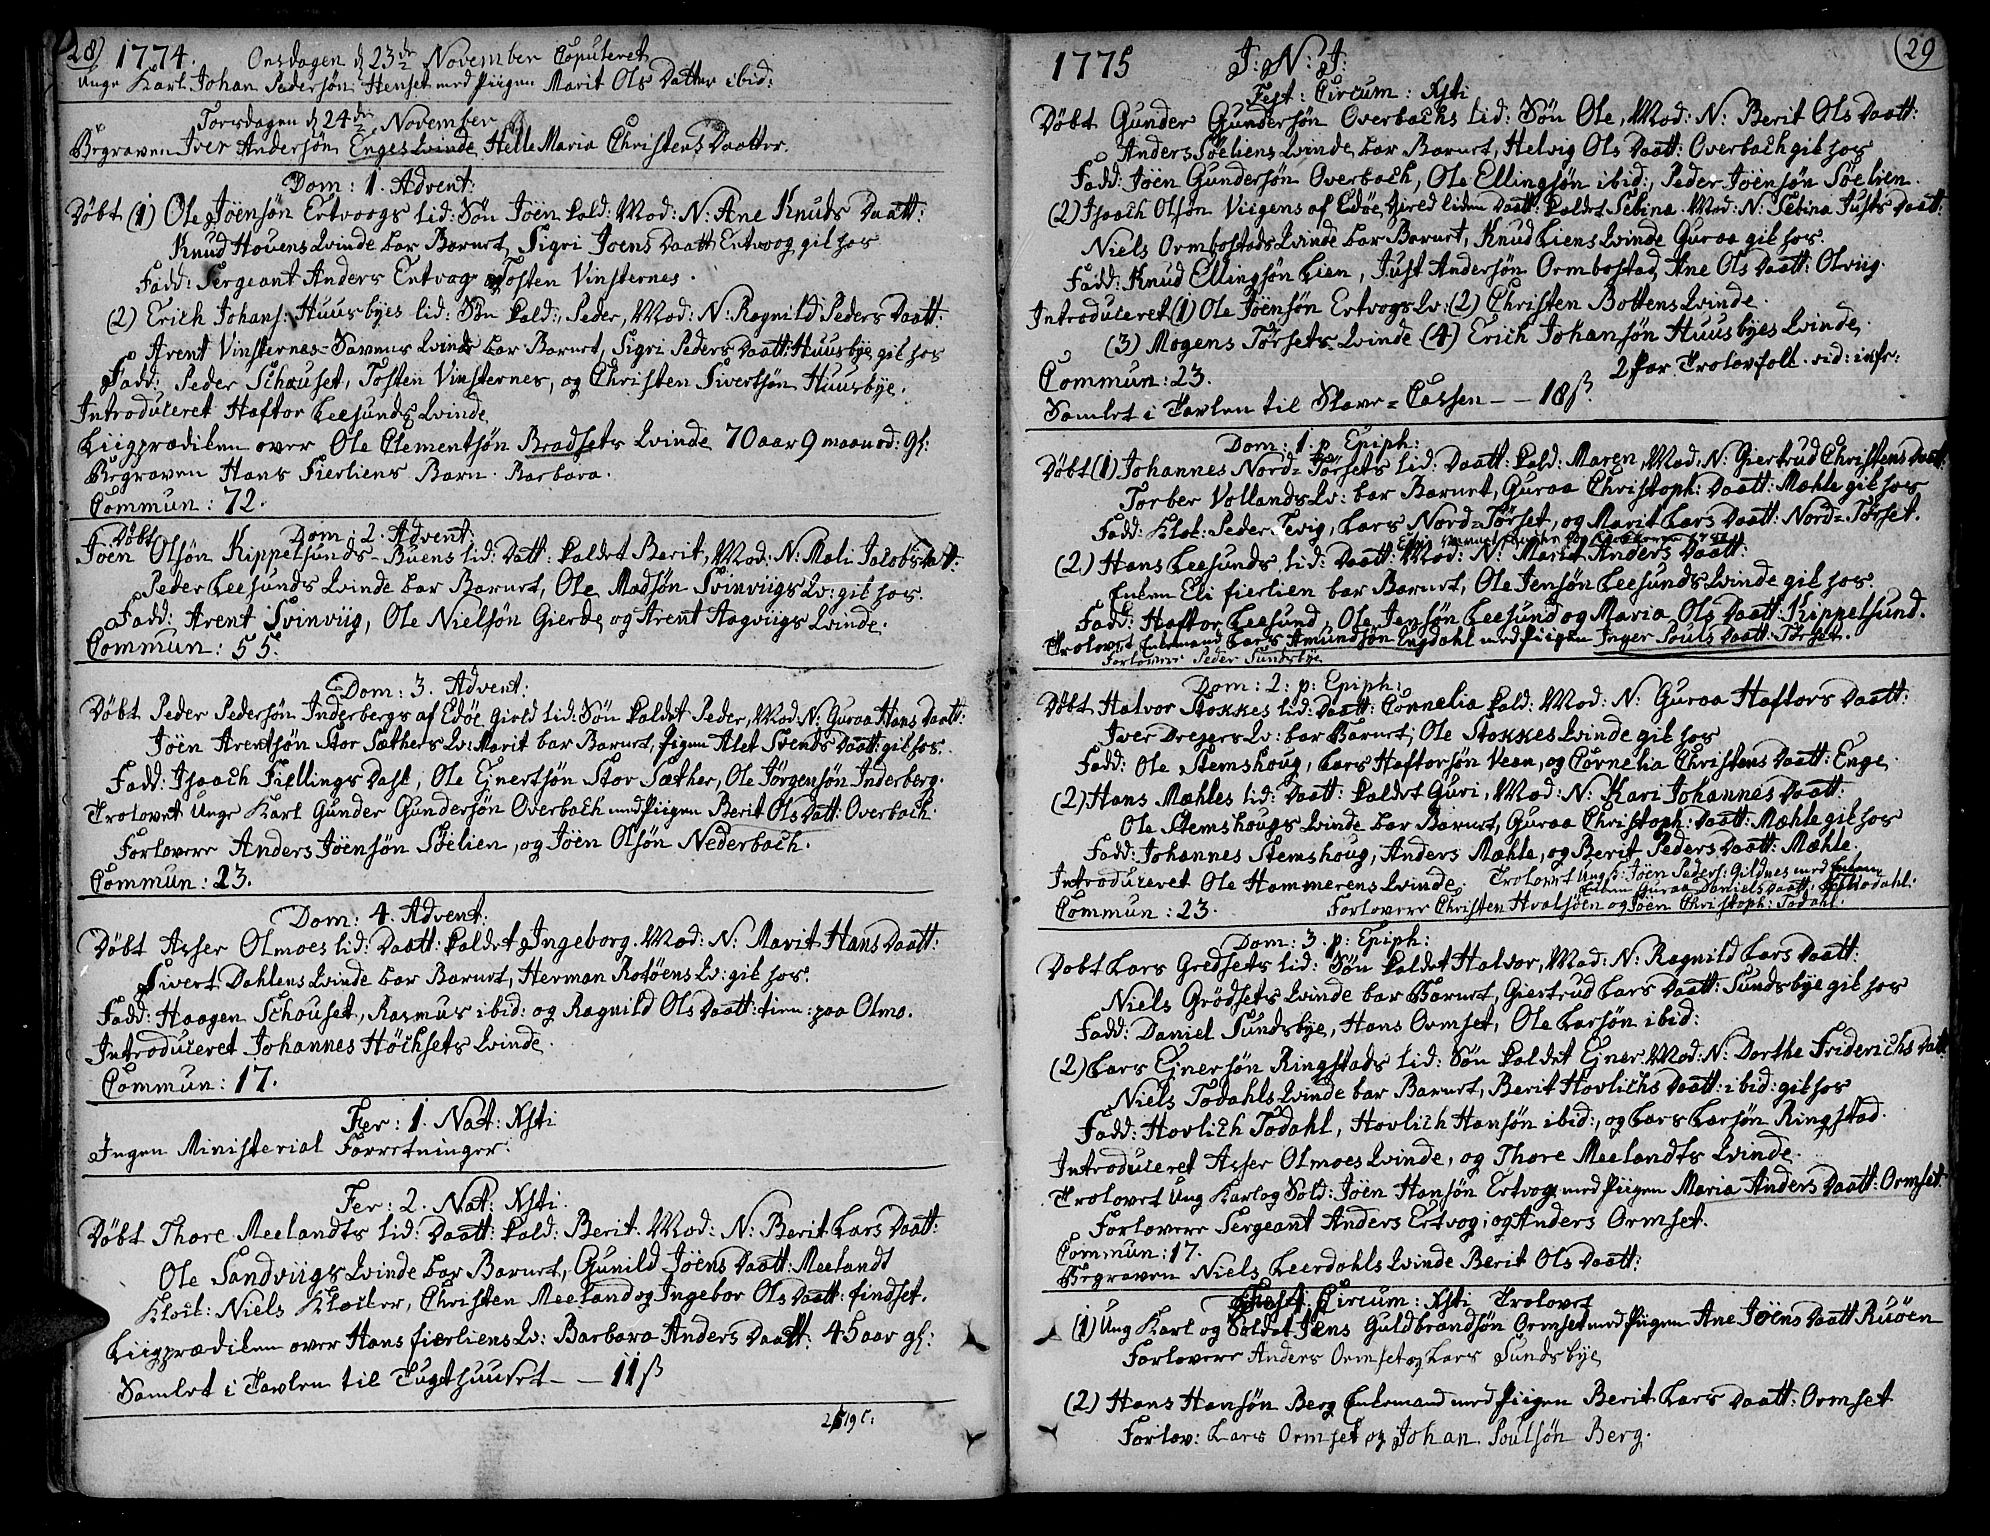 28) 1774. Onsdagen d 23de November Copuleret
Unge Karl Johan Pedersøn Henset med Piigen Marit Ols Datter ibid:
Torsdagen d 24de November
Begraven Iver Andersøn Enges Qvinde Helle Maria Christens Daatter.
Dom: 1. Advent:
Døbt (1) Ole Jøensøn Ertvoogs lid: Søn Jøen kald: Mod: N: Ane Knuds Daatt:
Knud Hovens Qvinde bar Barnet, Sigri Joens Daatt: Ertvoog gik hos
Fadd: Sergeant Anders Ertvog og Tosten Vinsternes.
(2) Erich Johans: Huusbyes lid: Søn kald:, Peder, Mod: N: Ragnild Peders Daatt:
Arent Vinsternes-Savens Qvinde bar Barnet, Sigri Peders Daatt: Huusbye gik hos
Fadd: Peder Schauset, Tosten Vinsternes, og Christen Sivertsøn Huusbye.
Introduceret Haftor Leesunds Qvinde
Liigprædiken over Ole Clementsøn Bredsets Qvinde 70 aar 9 maaned: gl:
Begraven Hans Fierliens Barn Barbara.
Commun: 72.
Dom: 2. Advent:
Døbt Joen Olsøn Kippelsunds-Buens lid: Datt: kaldet Berit, Mod: N: Mali Jacobs Datt:
Peder Leesunds Qvinde bar Barnet, Ole Madsøn Svinviigs Qv: gik hos.
Fadd: Arent Svinviig, Ole Nielsøn Gierde og Arent Aagviigs Qvinde.
Commun: 55.
Dom: 3. Advent:
Døbt Peder Pedersøn Inderbergs af Edøe Gield lid: Søn kaldet Peder, Mod: N: Guroa Hans Daatt:
Jøen Arentsøn Stor Sæthers Qv: Marit bar Barnet, Pigen Alet Svends Daatt: gik hos.
Fadd: Isaach Fiellings Dahl, Ole Ejnertsøn Stor Sæther, Ole Jørgensøn Inderberg.
Trolovet Unge Karl Gunder Gundersøn Overbach med Piigen Berit Ols Datt: Overbach.
Forlovere Anders Jøensøn Søelien, og Jøen Olsøn Nederbach.
Commun: 23.
Dom: 4. Advent:
Døbt Asser Olmoes lid: Daatt: kaldet Ingeborg. Mod: N: Marit Hans Daatt:
Sivert Dahlens Qvinde bar Barnet, Herman Rotøens Qv: gik hos.
Fadd: Haagen Schauset, Rasmus ibid: og Ragnild Ols Daatt: tien: paa Olmo.
Introduceret Johannes Høchsets Qvinde.
Commun: 17.
Fer: 1. Nat: Xsti
Ingen Ministerial Forretninger.
Fer: 2. Nat: Xsti.
Døbt Thore Meelandts lid: Daatt: kald: Berit. Mod: N: Berit Lars Daatt:
Ole Sandviigs Qvinde bar Barnet, Gunild Jøens Daatt: Meelandt
Klock: Niels Klocker, Christen Meeland og Ingebor Ols Daatt: Findset.
Liigprædiken over Hans Fierliens Qv: Barbara Anders Daatt: 45 aar gl:
Samlet i Tavlen til Tugthuuset - - 11ß
1775 J: N: J: 29
Fest: Circum: Xsti
Døbt Gunder Gundersøn Overbachs lid: Søn Ole, Mod: N: Berit Ols Daatt:
Anders Søeliens Qvinde bar Barnet, Helvig Ols Daatt: Overbach gik hos
Fadd: Jøen Gundersøn Overbach, Ole Ellingsøn ibid:, Peder Jøensøn Søelien.
(2) Isaach Olsøn Viigens af Edøe Gield liden Daatt: kaldet Sebina. Mod: N: Sebina Justs Daatt:
Niels Ormbostads Qvinde bar Barnet, Knud Liens Qvinde Guroa gik hos.
Fadd: Knud Ellingsøn Lien, Just Andersøn Ormbostad, Ane Ols Daatt: Olviig.
Introduceret (1) Ole Jøensøn Ertvogs Qv: (2) Christen Bottens Qvinde.
(3) Mogens Tørsets Qvinde (4) Erich Johansøn Huusbyes Qvinde.
Commun: 23. 2 Par Trolovfolk. vid: infr:
Samlet i Tavlen til Slave-Cassen - - 18ß.
Dom: 1. p Epiph:
Døbt (1) Johannes Nord-Tørsets lid: Daatt: kald: Maren, Mod: N: Giertrud Christens Daatt:
Torber Vollands Qv: bar Barnet, Guroa Christoph: Daatt: Mæhle gik hos
Fadd: Klok: Peder Tevig, Lars Nord-Tørset, og Marit Lars Daatt: Nord-Tørset.
(2) Hans Leesunds lid: Daatt: Mod: N: Marit Anders Daatt:
Enken Eli Fierlien bar Barnet, Ole Jensøn Leesunds Qvinde gik hos.
Fadd: Haftor Leesund, Ole Jensøn Leesund og Maria Ols Daatt: Kippelsund.
Trolovet Enkemand Lars Amundsøn Engdahl med Piigen Inger Pouls Daatt: Tørset.
Forlovere Peder Sundsbye
Dom: 2: p: Epiph:
Døbt Halvor Stokkes lid: Daatt: Cornelia kald: Mod: N: Guroa Haftors Daatt:
Iver Dregers Qv: bar Barnet, Ole Stokkes Qvinde gik hos
Fadd: Ole Stemshoug, Lars Haftorsøn Veen, og Cornelia Christens Daatt: Enge.
(2) Hans Mæhles lid: Daatt: kaldet Guri, Mod: N: Kari Johannes Daatt:
Ole Stemshougs Qvinde bar Barnet, Guroa Christoph: Daatt: Mæhle gik hos
Fadd: Johannes Stemshoug, Anders Mæhle, og Berit Peders Daatt: Mæhle.
Introduceret Ole Hammerens Qvinde. Trolovet Ung K: Jøen Peders: Gildnes med
Enken Guroa Daniels Daatt: Todahl.
Commun: 23. Forlovere Christen Hvalsøen og Jøen Christoph: Todahl.
Dom: 3. p: Epiph:
Døbt Lars Gredsets lid: Søn kaldet Halvor, Mod: N: Ragnild Lars Daatt:
Niels Grødsets Qvinde bar Barnet, Giertrud Lars Daatt: Sundsbye gik hos
Fadd: Daniel Sundsbye, Hans Ormset, Ole Larsøn ibid:
(2) Lars Ejnersøn Ringstads lid: Søn kaldet Ejner Mod: N: Dorthe Friderichs Datt:
Niels Todahls Qvinde bar Barnet, Berit Hovlichs Daatt: ibid: gik hos
Fadd: Hovlich Todahl, Hovlich Hansøn ibid:, og Lars Larsøn Ringstad.
Introduceret Asser Olmoes Qvinde, og Thore Meelandts Qvinde.
Trolovet Ung Karl og Sold: Jøen Hansøn Ertvog med Piigen Maria Anders Daatt: Ormset.
Forlovere Sergeant Anders Ertvog, og Anders Ormset.
Commun: 17.
Begraven Niels Leerdahls Qvinde Berit Ols Daatt:
Fest Circum: Xsti Trolovet
(1) Ung Karl og Soldat Jens Guldbrandsøn Ormset med Piigen Ane Jøens Daatt Ruøen
Forlovere Anders Ormset og Lars Sundsbye
(2) Hans Hansøn Berg Enkemand med Piigen Berit Lars Daatt: Ormset
Forlov: Lars Ormset og Johan Poulsøn Berg.